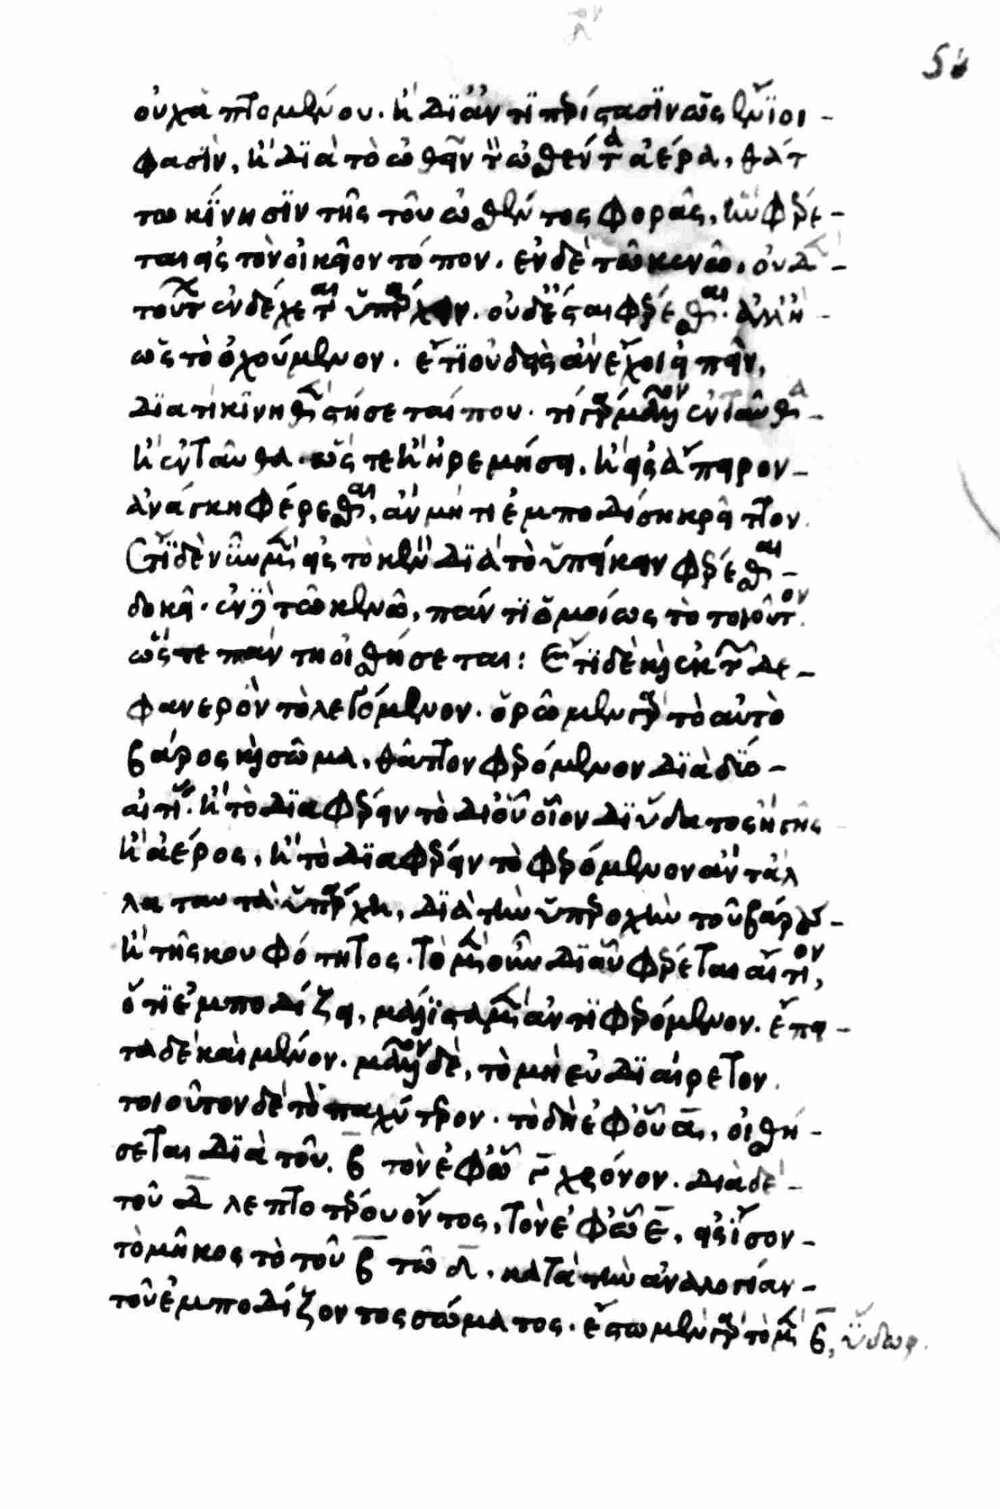 οὐχ ἁπτομένου. ἢ δι' ἀντιπερίστασιν ὥς ἔνιοι
φασίν, ἢ διὰ τὸ ὠθεῖν τὸν ὠσθέντα ἀέρα, θάτ
τω κίνησιν τῆς τοῦ ὠσθέντος φορᾶς, ἣν φέρε-
ται εἰς τὸν οἰκεῖον τόπον. ἐν δὲ τῷ κενῷ, οὐδὲν
τούτων ἐνδέχεται ὑπάρχειν. οὐδ' ἔσται φέρεσθαι. ἀλλ' ἢ
ὡς τὸ ὀχούμενον. ἔτι οὐδεὶς ἂν ἔχοι εἰπεῖν,
διατί κινηθὲν στήσεταί που. τί γὰρ μᾶλλον ἐνταῦθα
ἢ ἐνταῦθα. ὥστε ἢ ἠρεμήσει, ἢ εἰς ἄπειρον
ἀνάγκη φέρεσθαι, ἂν μή τι ἐμποδίσῃ κρεῖττον.
Ἔτι δὲ νῦν μὲν εἰς τὸ κενὸν διὰ τὸ ὑπείκειν φέρεσθαι
δοκεῖ. ἐν δὲ τῷ κενῷ, πάντῃ ὁμοίως τὸ τοιοῦτον.
ὥστε πάντῃ οἰσθήσεται: Ἔτι δὲ καὶ ἐκ τῶνδε
φανερὸν τὸ λεγόμενον. ὁρῶμεν γὰρ τὸ αὐτὸ
βάρος καὶ σῶμα, θᾶττον φερόμενον διὰ δύο
αἰτίας. ἢ τὸ διαφέρειν τὸ δι' οὗ οἷον δι' ὕδατος ἢ γῆς
ἢ ἀέρος, ἢ τὸ διαφέρειν τὸ φερόμενον ἂν τἆλ
λα ταυτὰ ὑπάρχῃ, διὰ τὴν ὑπεροχὴν τοῦ βάρους
ἢ τῆς κουφότητος. Τὸ μὲν οὖν δι' οὗ φέρεται αἴτιον,
ὅτι ἐμποδίζει, μάλιστα μὲν ἀντιφερόμενον. ἔπει-
τα δὲ καὶ μένον. μᾶλλον δὲ, τὸ μὴ εὐδιαίρετον.
τοιοῦτον δὲ τὸ παχύτερον. τὸ δὴ ἐφ' οὗ α, οἰσθή-
σεται διὰ τοῦ β τὸν ἐφ' ᾧ γ χρόνον. διὰ δὲ
τοῦ δ λεπτοτέρου ὄντος, τὸν ἐφ' ᾧ ε, εἰ ἴσον
τὸ μῆκος τὸ τοῦ β τῷ δ, κατὰ τὴν ἀναλογίαν
τοῦ ἐμποδίζοντος σώματος. ἔστω μὲν γὰρ τὸ μὲν β, ὕδωρ.